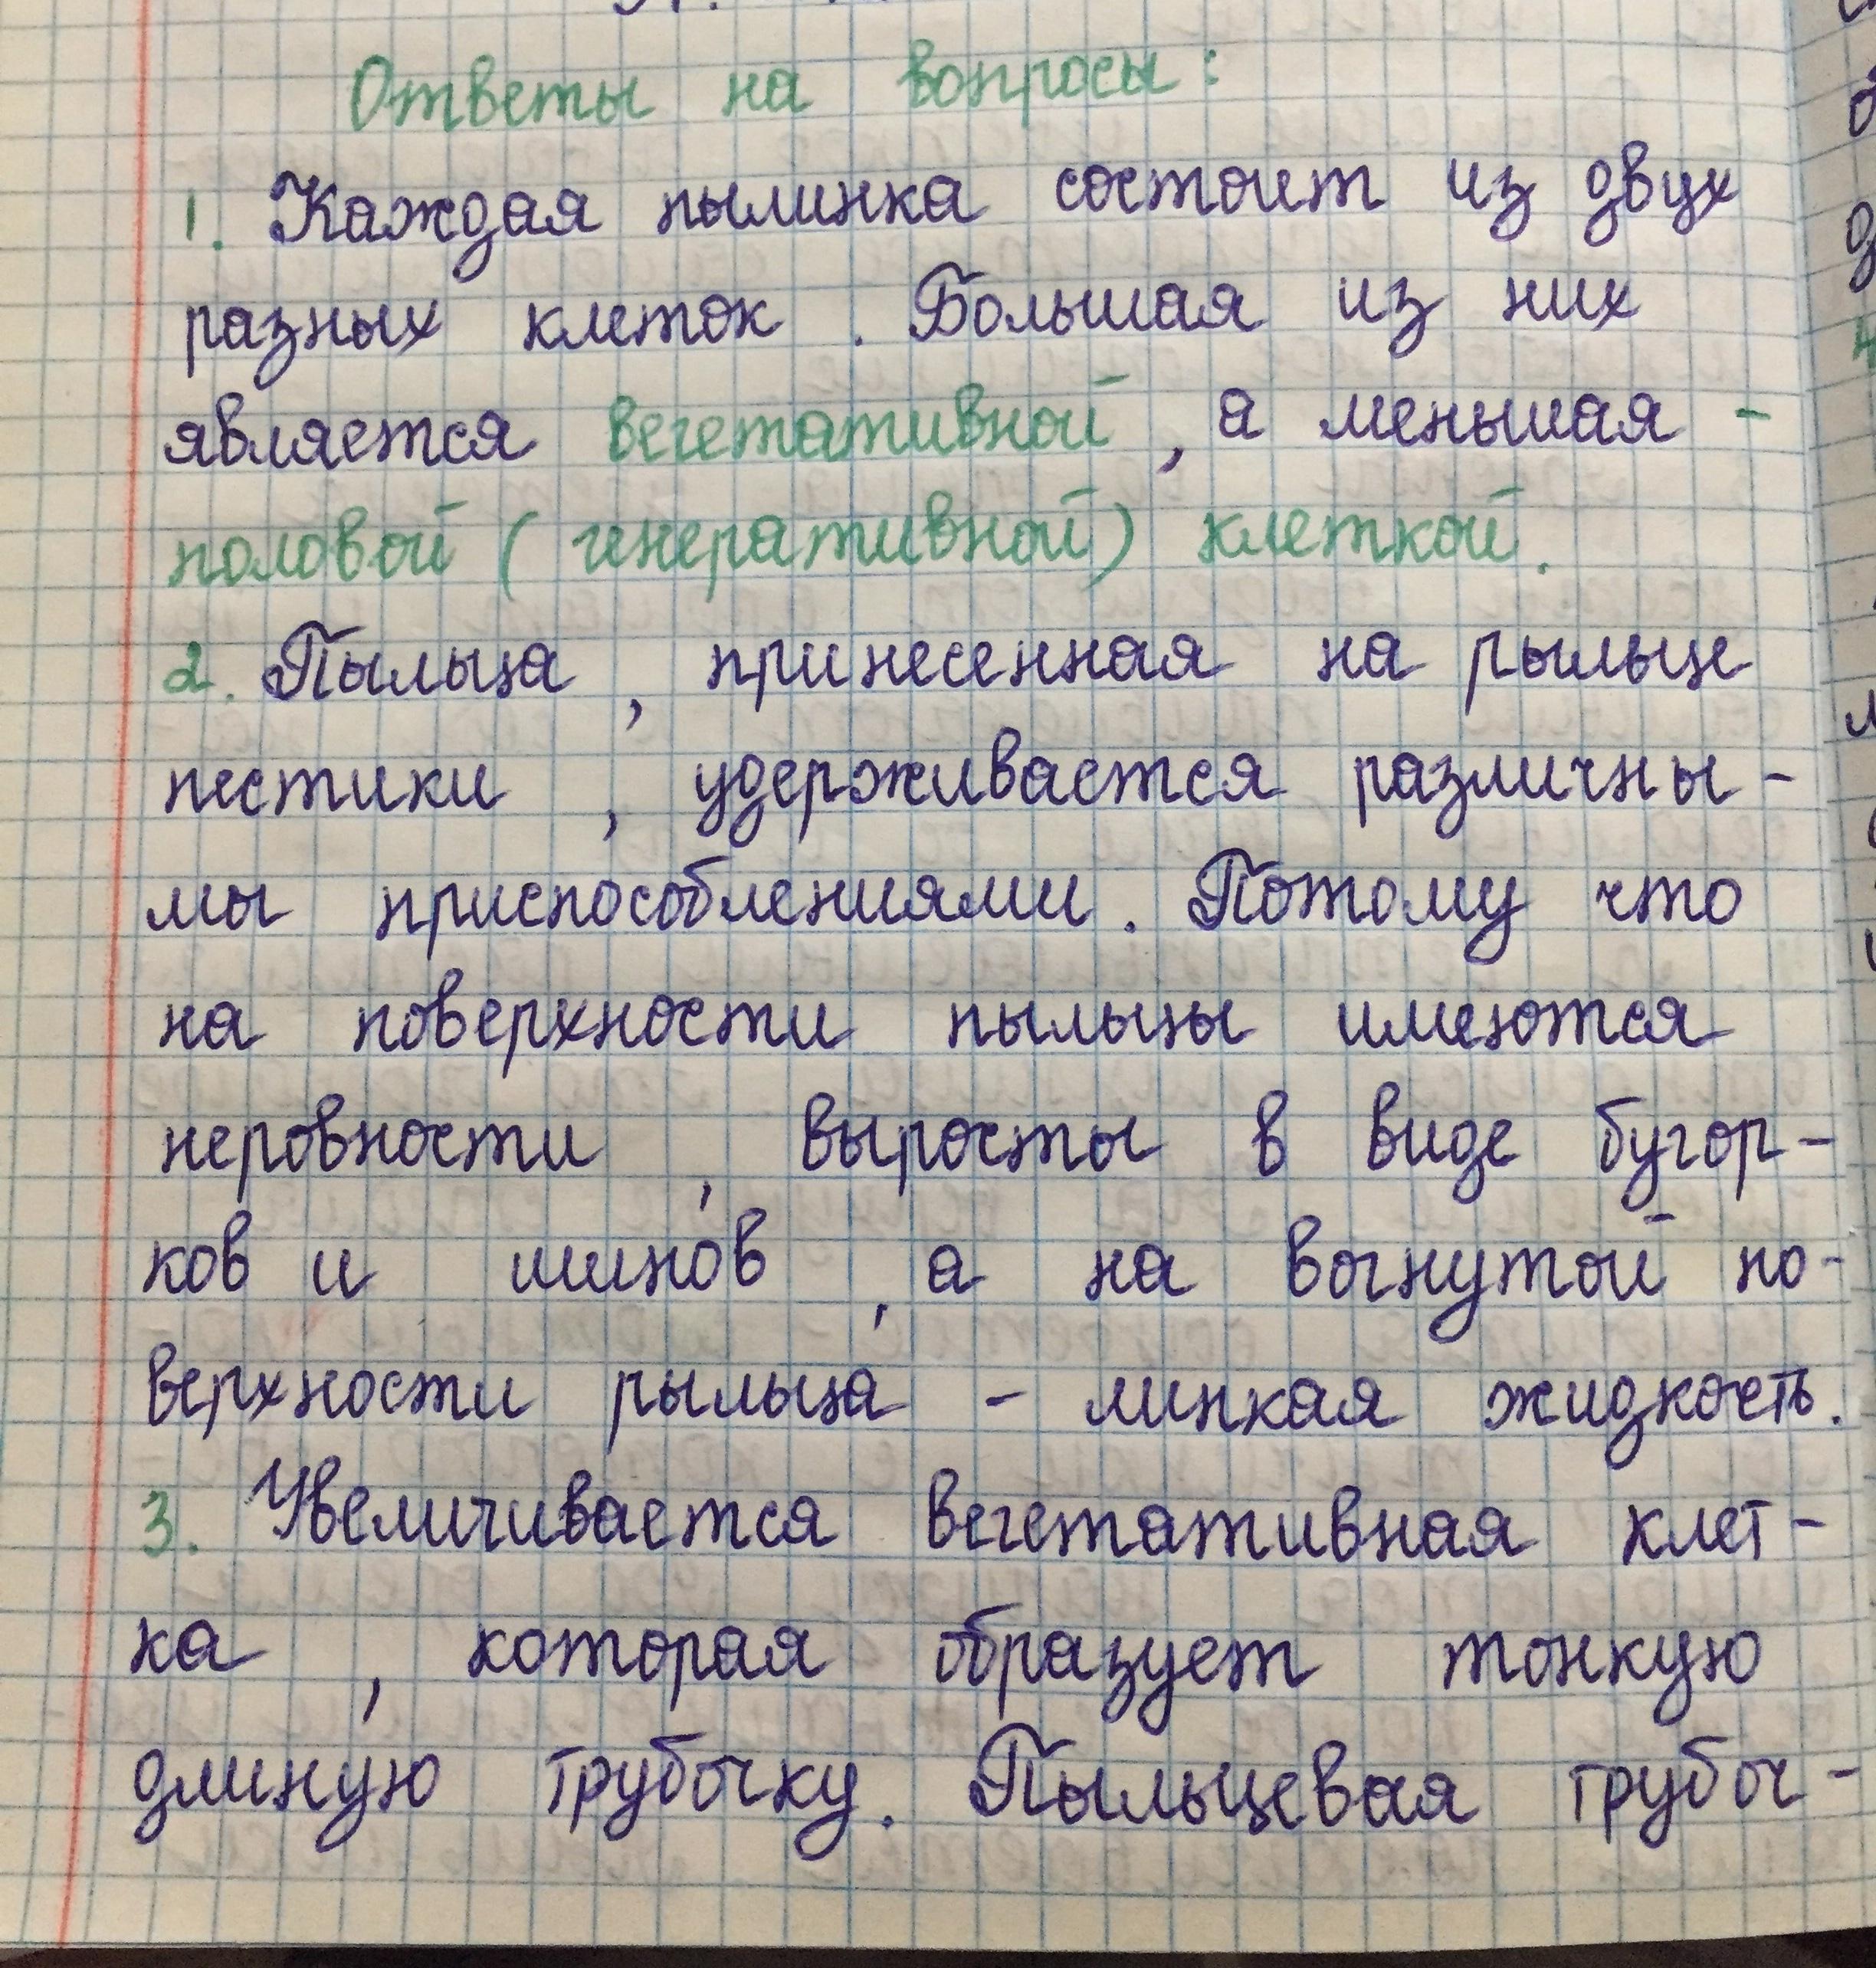 Ответы на вопросы:
1. Каждая пылинка состоит из двух
разных клеток. Большая из них
является вегетативной, а меньшая -
половой (генеративной) клеткой.
2. Пыльца, принесенная на рыльце
пестики, удерживается различны-
мы приспособлениями. Потому что
на поверхности пыльцы имеются
неровности, выросты в виде бугор-
ков и шинов, а на вогнутой по-
верхности рыльца - липкая жидкость.
3. Увеличивается вегетативная клет-
ка, которая образует тонкую
длиную трубочку. Пыльцевая трубоч-